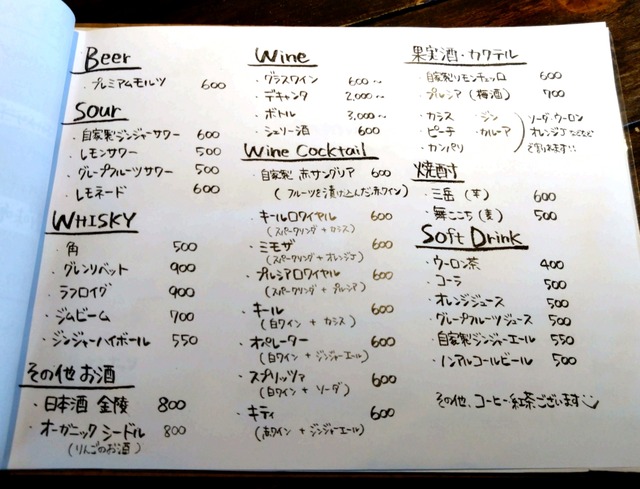 Beer
・プレミアムモルツ 600
Sour
・自家製ジンジャーサワー 600
・レモンサワー 500
・グレープフルーツサワー 500
・レモネード 600
WHISKY
・角 500
・グレンリベット 900
・ラフロイグ 900
・ジムビーム 700
・ジンジャーハイボール 550
その他お酒
・日本酒 金陵 800
・オーガニック シードル 800
(りんごのお酒)
Wine
・グラスワイン 600~
・デキャンタ 2,000~
・ボトル 3,000~
・シェリー酒 600
Wine Cocktail
・自家製 赤サングリア 600
(フルーツを漬け込んだ赤ワイン)
・キールロワイヤル 600
(スパークリング + カシス)
・ミモザ 600
(スパークリング + オレンジJ)
・プルシアロワイヤル 600
(スパークリング + プルシア)
・キール 600
(白ワイン + カシス)
・オペレーター 600
(白ワイン + ジンジャーエール)
・スプリッツァ 600
(白ワイン + ソーダ)
・キティ 600
(赤ワイン + ジンジャーエール)
果実酒・カクテル
・自家製リモンチェッロ 600
・プルシア (梅酒) 700
・カシス ・ジン
・ピーチ ・カルーア
・カンパリ
ソーダ、ウーロン
オレンジJなどなど
で割れます!!
焼酎
・三岳 (芋) 600
・舞ここち (麦) 500
Soft Drink
・ウーロン茶 400
・コーラ 500
・オレンジジュース 500
・グレープフルーツジュース 500
・自家製ジンジャーエール 550
・ノンアルコールビール 500
その他、コーヒー紅茶ございます